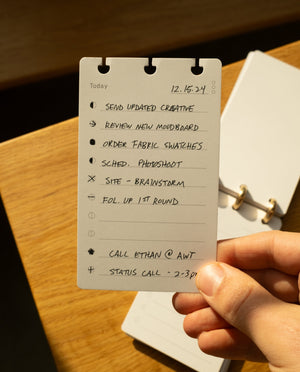 Today 12.15.24
SEND UPDATED CREATIVE
REVIEW NEW MOODBOARD
ORDER FABRIC SWATCHES
SCHED. PHOTOSHOOT
SITE - BRAINSTORM
FOL. UP 1ST ROUND
CALL ETHAN @ AWT
STATUS CALL - 2-3P